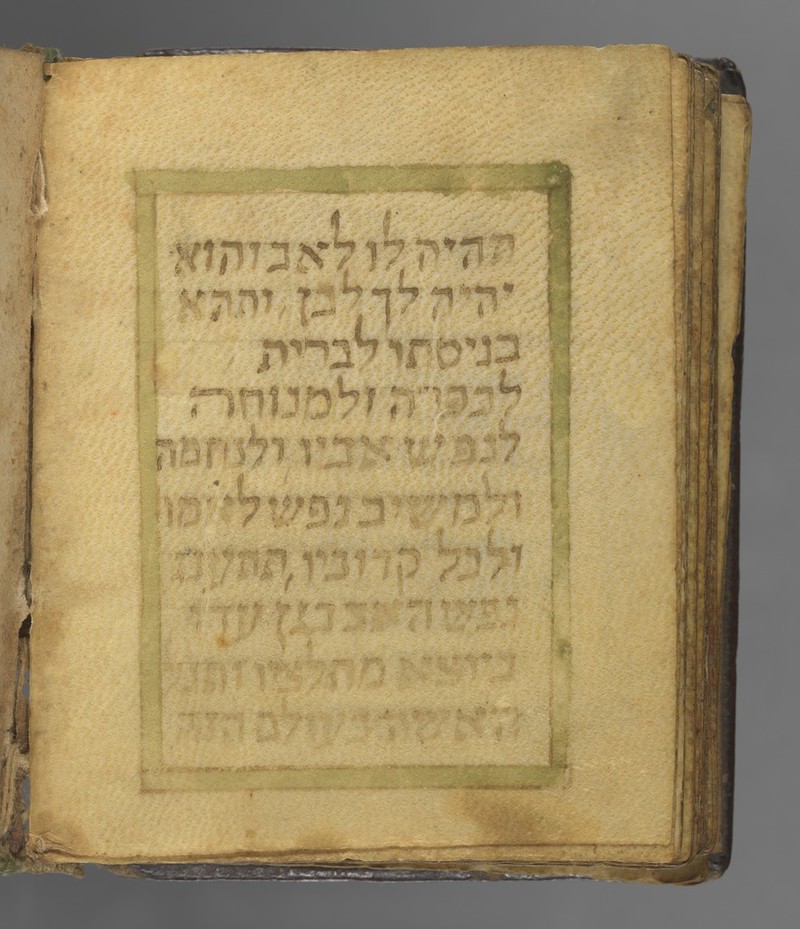 תהיה לו לאב והוא
יהיה לך לבן ותהא
כניסתו לברית
לכפרה ולמנוחה
לנפש אביו ולנחמה
ולמשיב נפש לאמו
ולכל קרוביו, תתענג
נפש האב בגן עדן
ביוצא מחלציו ותגל
האשה בעולם הזה